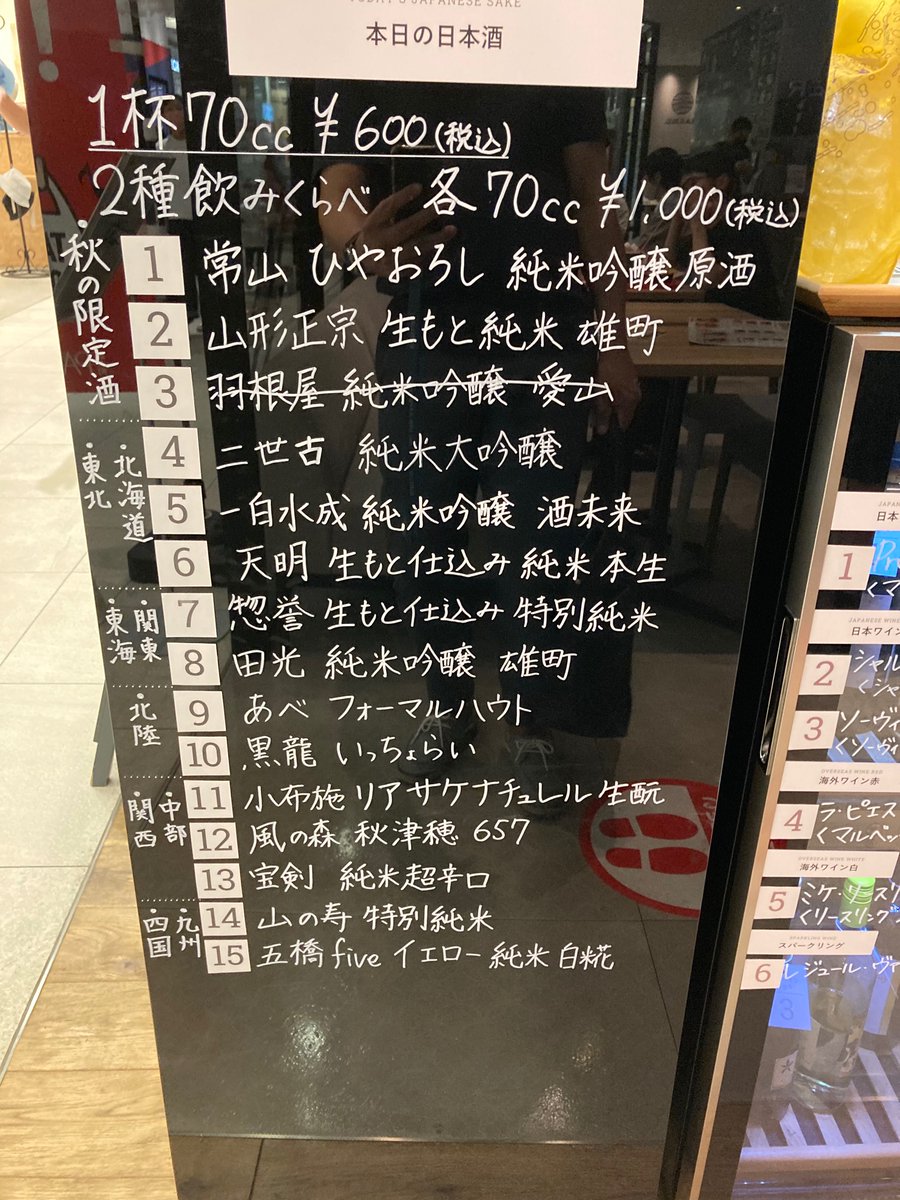 TODAY'S JAPANESE SAKE
本日の日本酒
1杯70cc ¥600(税込)
2種飲みくらべ 各70cc ¥1,000(税込)
・秋の限定酒
1 常山 ひやおろし 純米吟醸原酒
2 山形正宗 生もと純米 雄町
3 羽根屋 純米吟醸 愛山
・北海道
・東北
4 二世古 純米大吟醸
5 一白水成 純米吟醸 酒未来
6 天明 生もと仕込み 純米 本生
・関東
・東海
7 惣誉 生もと仕込み 特別純米
8 田光 純米吟醸 雄町
・北陸
9 あべ フォーマルハウト
10 黒龍 いっちょらい
・中部
・関西
11 小布施 リア サケナチュレル 生酛
12 風の森 秋津穂 657
13 宝剣 純米超辛口
・九州
・四国
14 山の寿 特別純米
15 五橋 five イエロー 純米 白糀
日本
1
JAPANESE WINE
日本ワイン
2 シャル
3 ソーヴィ
くソーヴィ
OVERSEAS WINE RED
海外ワイン赤
4 ラ・ピエス
くマルペッ
OVERSEAS WINE WHITE
海外ワイン白
5 ミケ・
くリースリング
SPARKLING WINE
スパークリング
6 レジュール・ヴィ
3